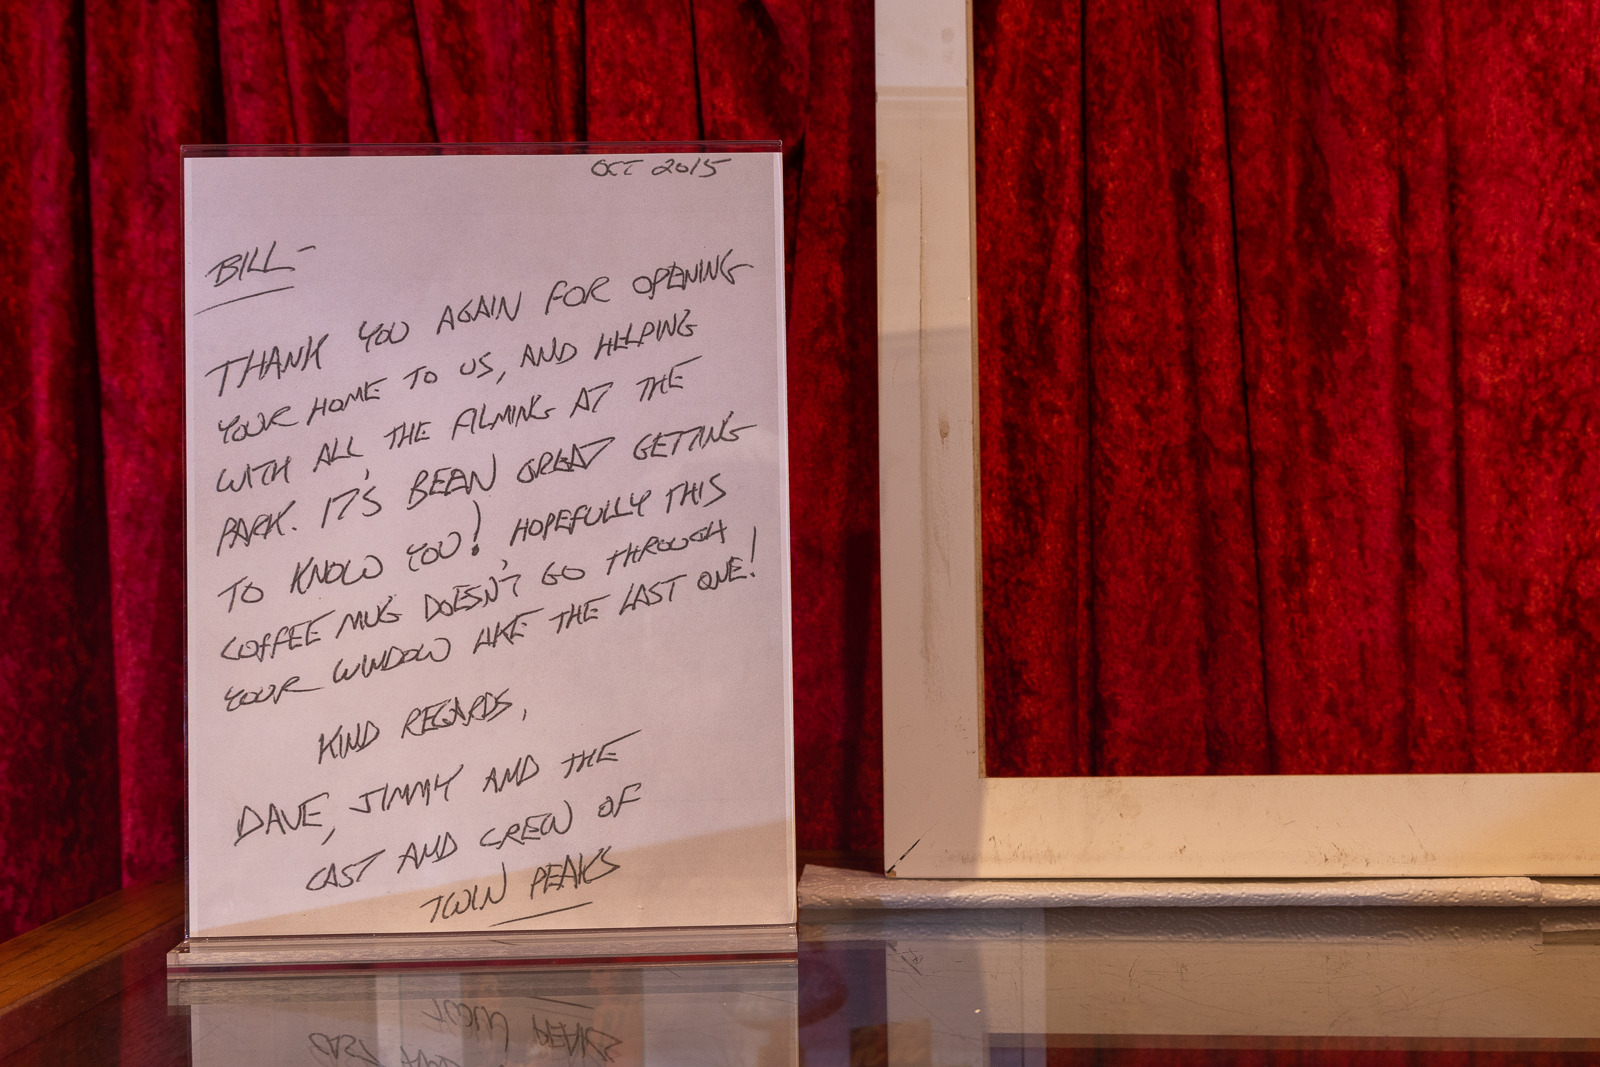 OCT 2015
BILL-
THANK YOU AGAIN FOR OPENING
YOUR HOME TO US, AND HELPING
WITH ALL THE FILMING AT THE
PARK. IT'S BEEN GREAT GETTING
TO KNOW YOU! HOPEFULLY THIS
COFFEE MUG DOESN'T GO THROUGH
YOUR WINDOW LIKE THE LAST ONE!
KIND REGARDS,
DAVE, JIMMY AND THE
CAST AND CREW OF
TWIN PEAKS